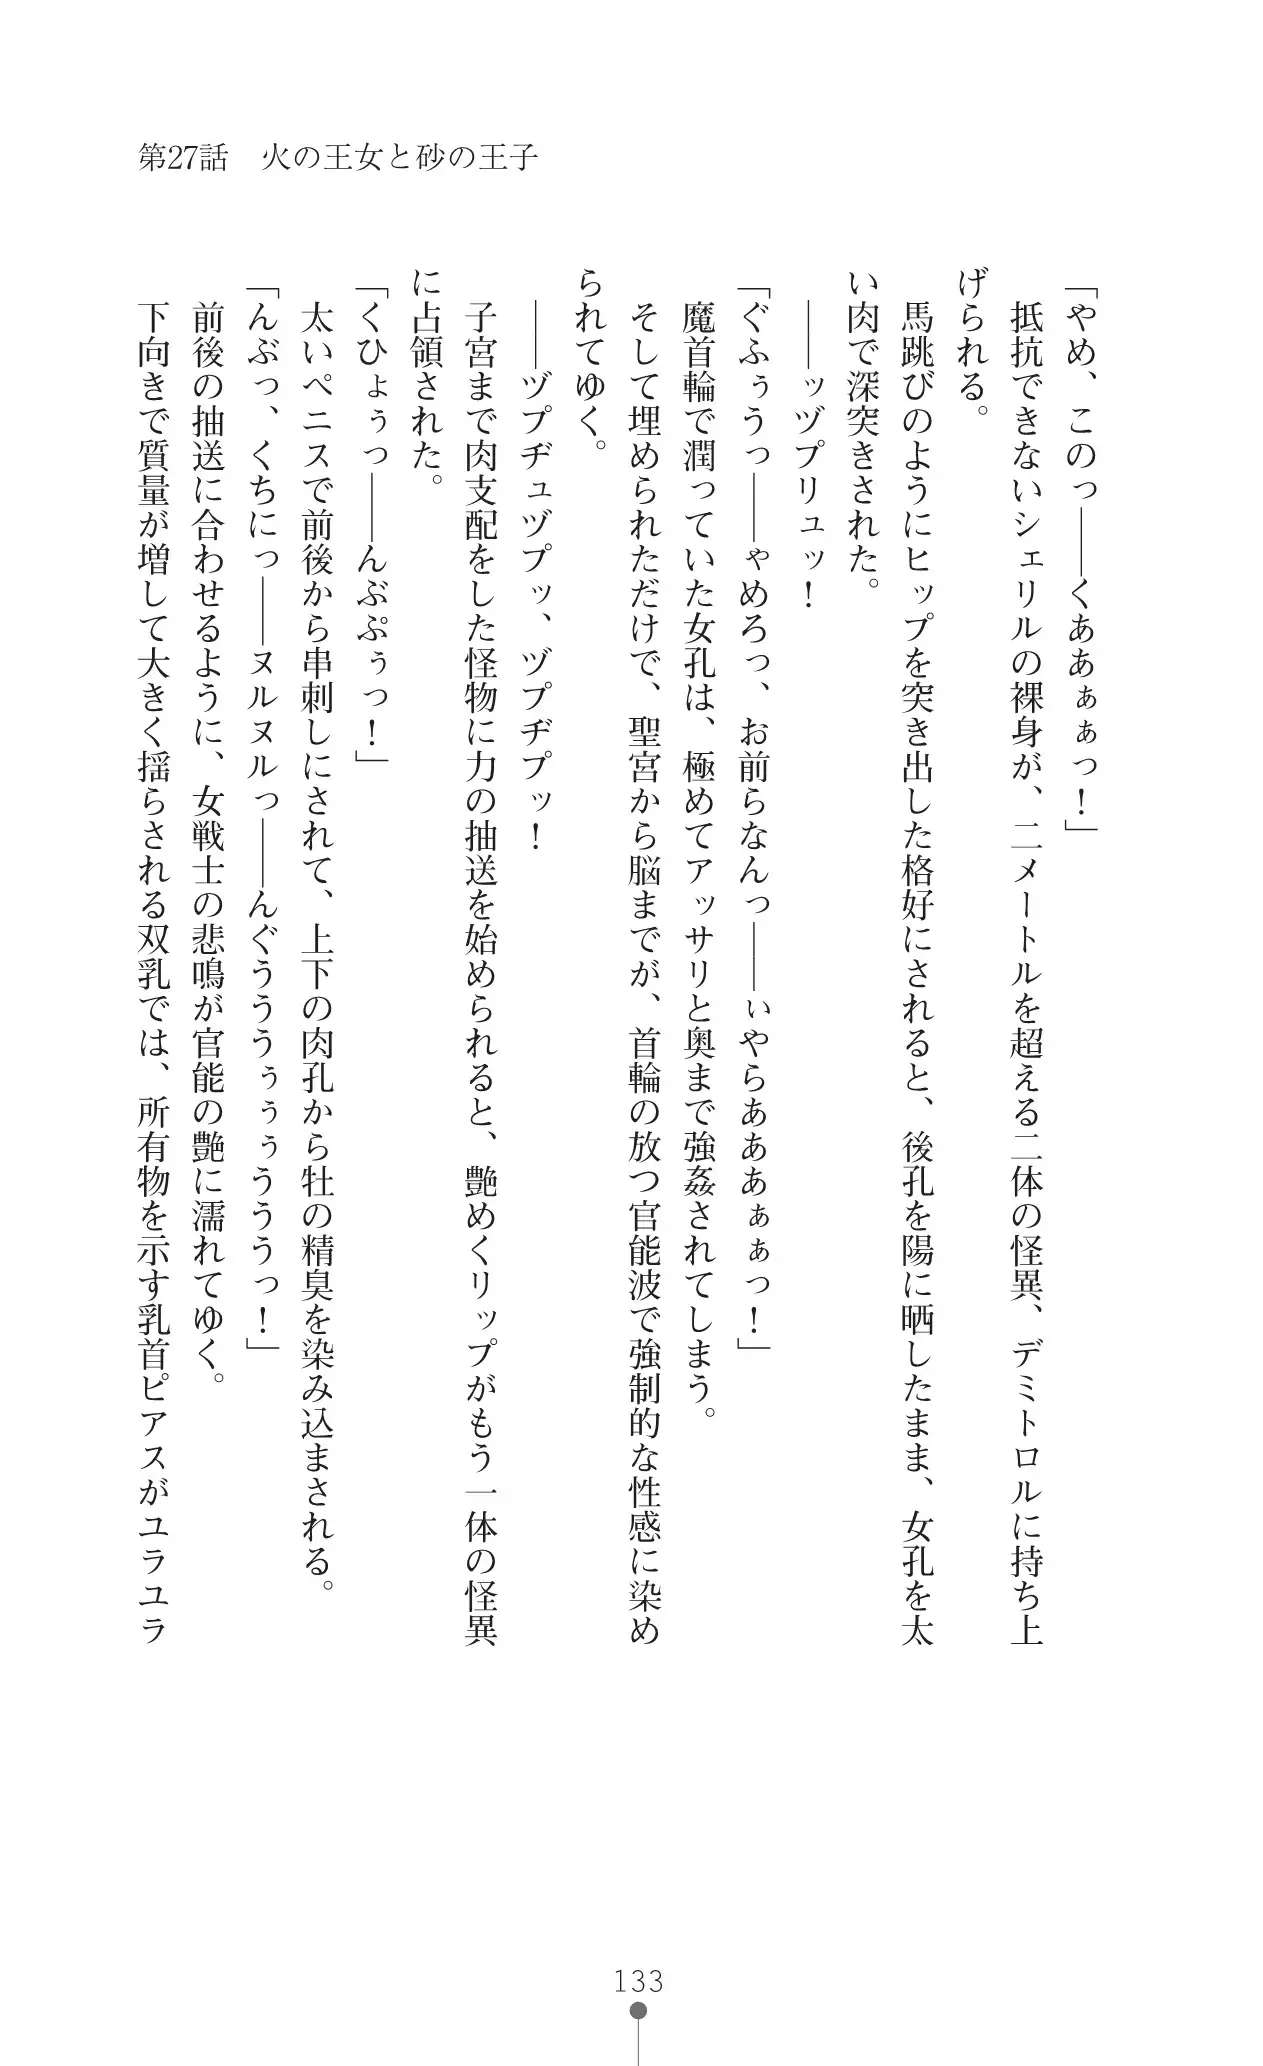 第27話　火の王女と砂の王子
「やめ、このっ――くああぁぁっ！」
　抵抗できないシェリルの裸身が、二メートルを超える二体の怪異、デミトロルに持ち上
げられる。
　馬跳びのようにヒップを突き出した格好にされると、後孔を陽に晒したまま、女孔を太
い肉で深突きされた。
　――ッヅプリュッ！
「ぐふぅうっ――ゃめろっ、お前らなんっ――ぃやらあああぁぁっ！」
　魔首輪で潤っていた女孔は、極めてアッサリと奥まで強姦されてしまう。
　そして埋められただけで、聖宮から脳までが、首輪の放つ官能波で強制的な性感に染め
られてゆく。
　――ヅプヂュヅプッ、ヅプヂプッ！
　子宮まで肉支配をした怪物に力の抽送を始められると、艶めくリップがもう一体の怪異
に占領された。
「くひょぅっ――んぶぷぅっ！」
　太いペニスで前後から串刺しにされて、上下の肉孔から牡の精臭を染み込まされる。
「んぶっ、くちにっ――ヌルヌルっ――んぐうううぅぅぅうううっ！」
　前後の抽送に合わせるように、女戦士の悲鳴が官能の艶に濡れてゆく。
　下向きで質量が増して大きく揺らされる双乳では、所有物を示す乳首ピアスがユラユラ
133